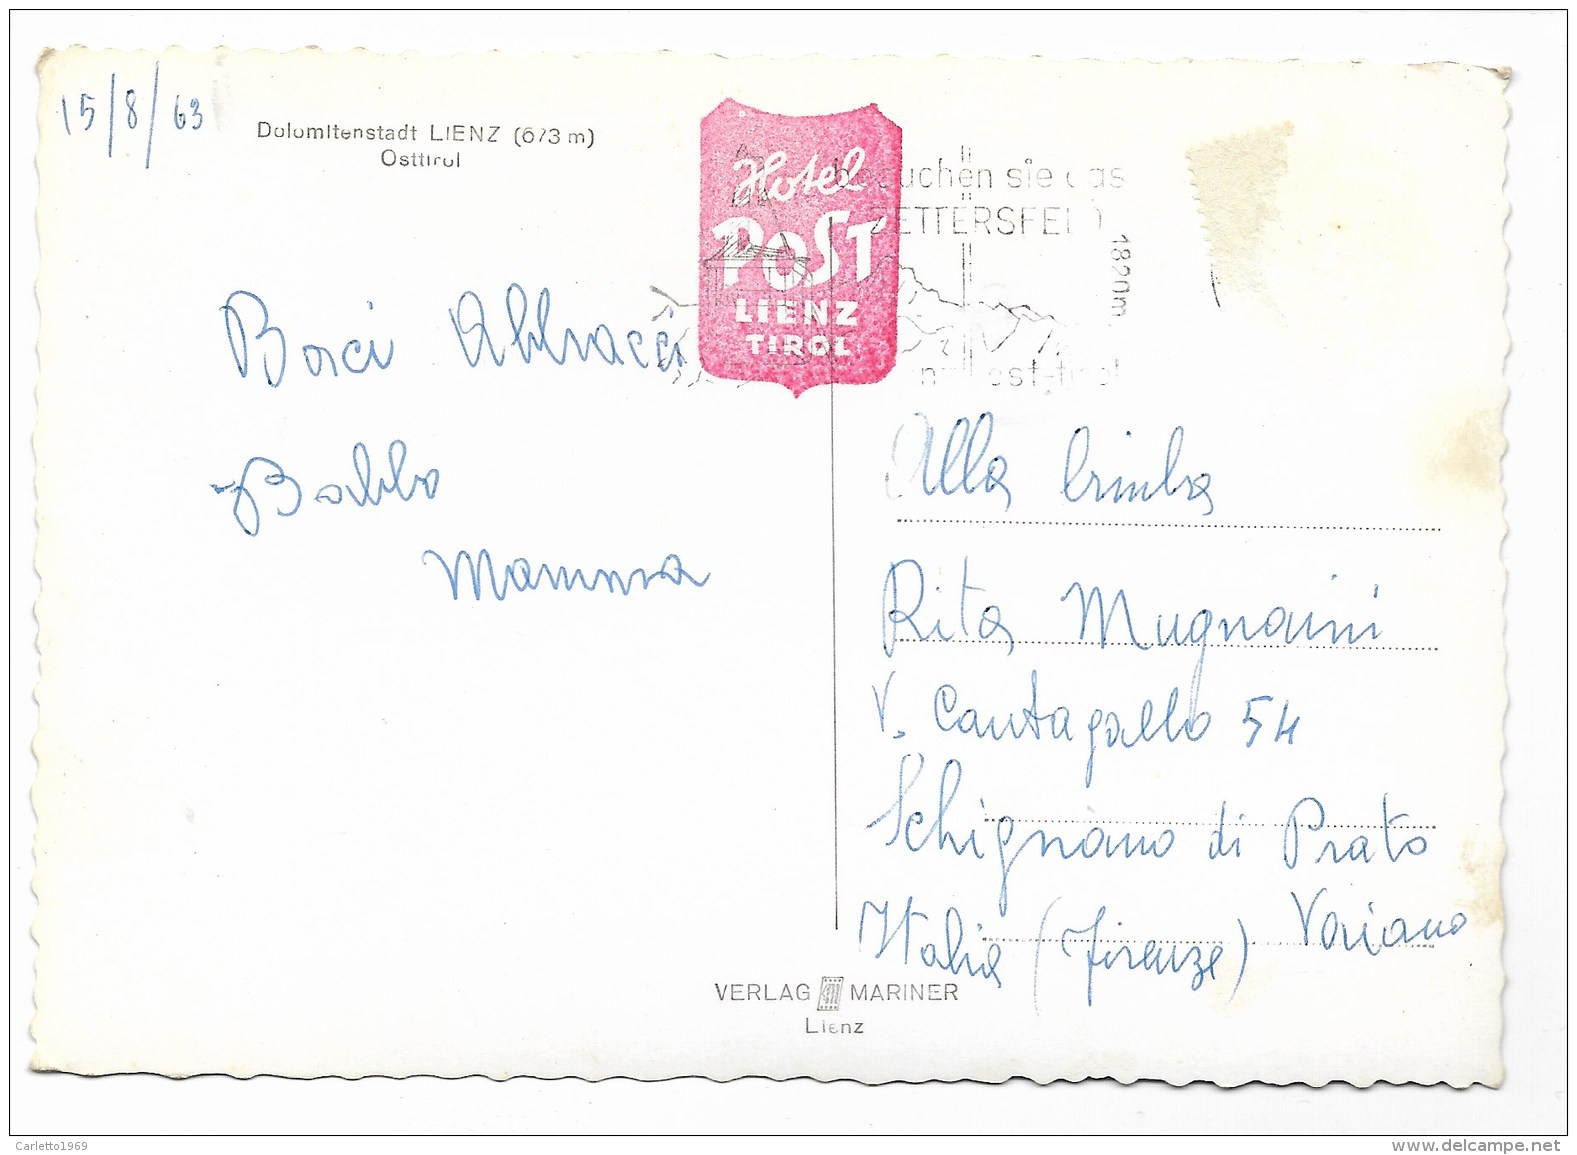 15/8/63
Dolomitenstadt LIENZ (673 m)
Osttirol
Hotel
POST
LIENZ
TIROL
besuchen sie das
ZETTERSFELD
1820m
ost-tirol
Baci Abbracci
Babbo
Mamma
Alla bimba
Rita Mugnaini
V. Cantagallo 54
Schignano di Prato
Italia (Firenze) Vaiano
VERLAG MARINER
Lienz
Carletto1969
www.delcampe.net